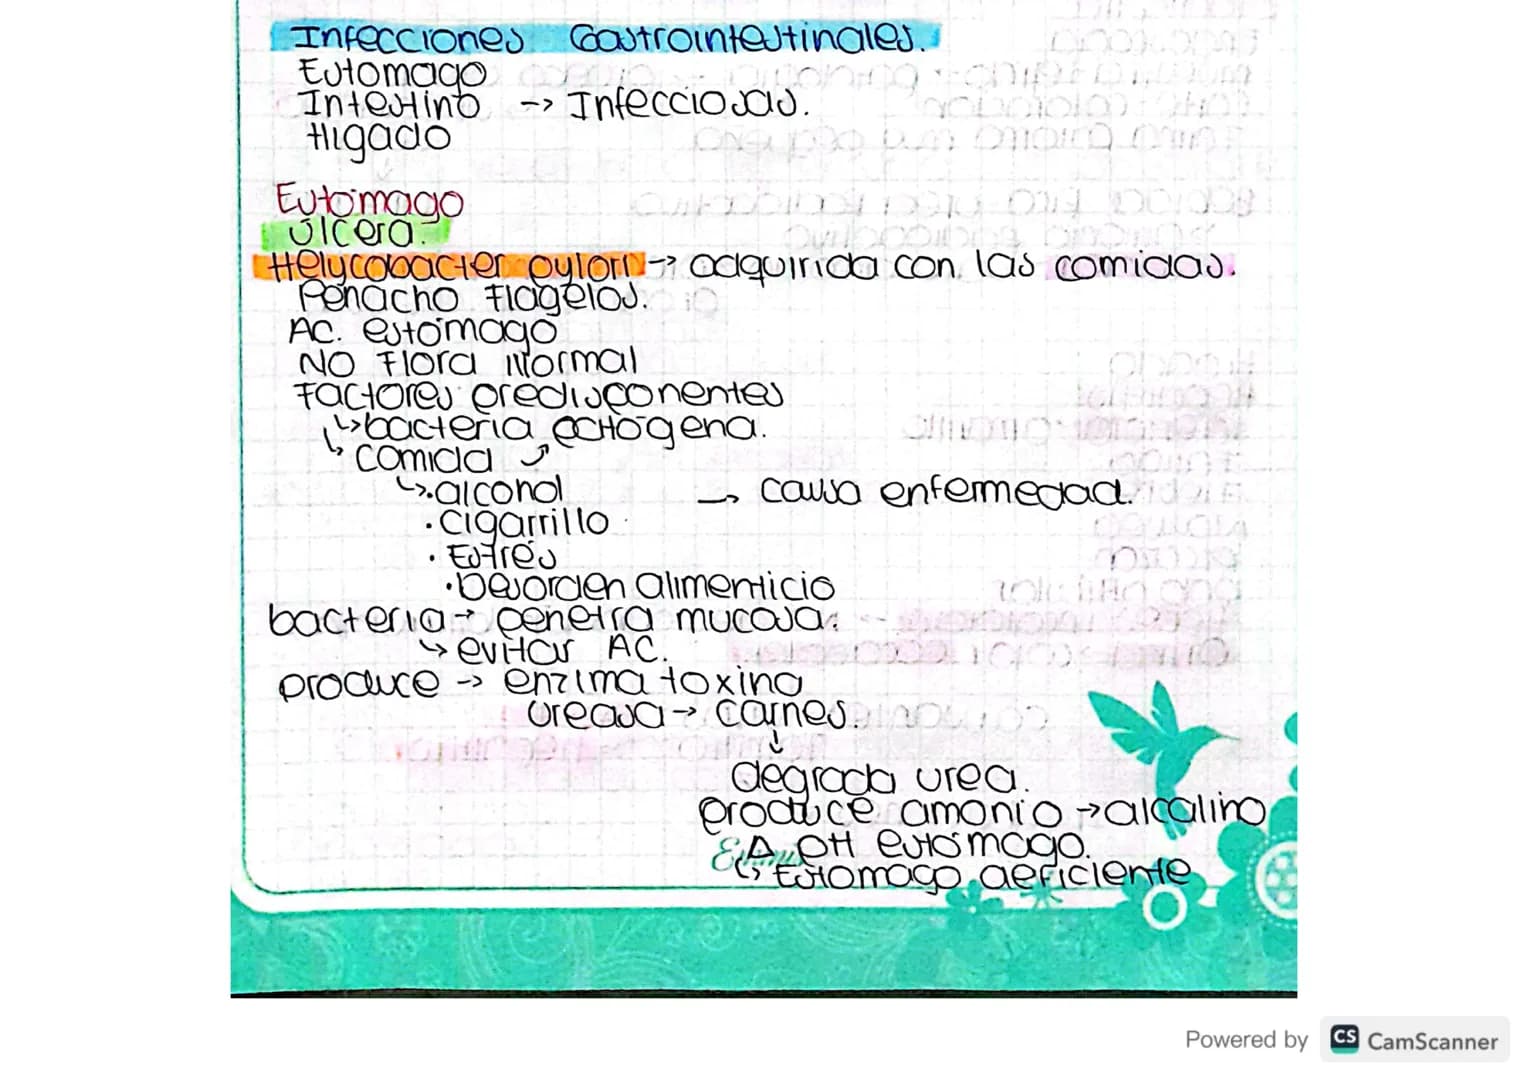 Infecciones Gastrointestinales.
Estomago
Intestino -> Infecciosas.
Higado
Estómago
Úlcera.
Helycobacter pylori -> adquirida con las comidas.
Penacho Flagelos.
AC. estómago
NO Flora Normal
Factores predisponentes
↳bacteria patógena.
↳ comida ⤴
↳.alcohol → causa enfermedad.
·Cigarrillo
· Estrés
·Desorden alimenticio
bacteria → penetra mucosa.
↳ evitar AC.
produce -> enzima toxina
Ureasa → carnes.
↓
degrada urea.
produce amonio → alcalino
Δ pH estómago.
↳ Estomago deficiente
Powered by CS CamScanner